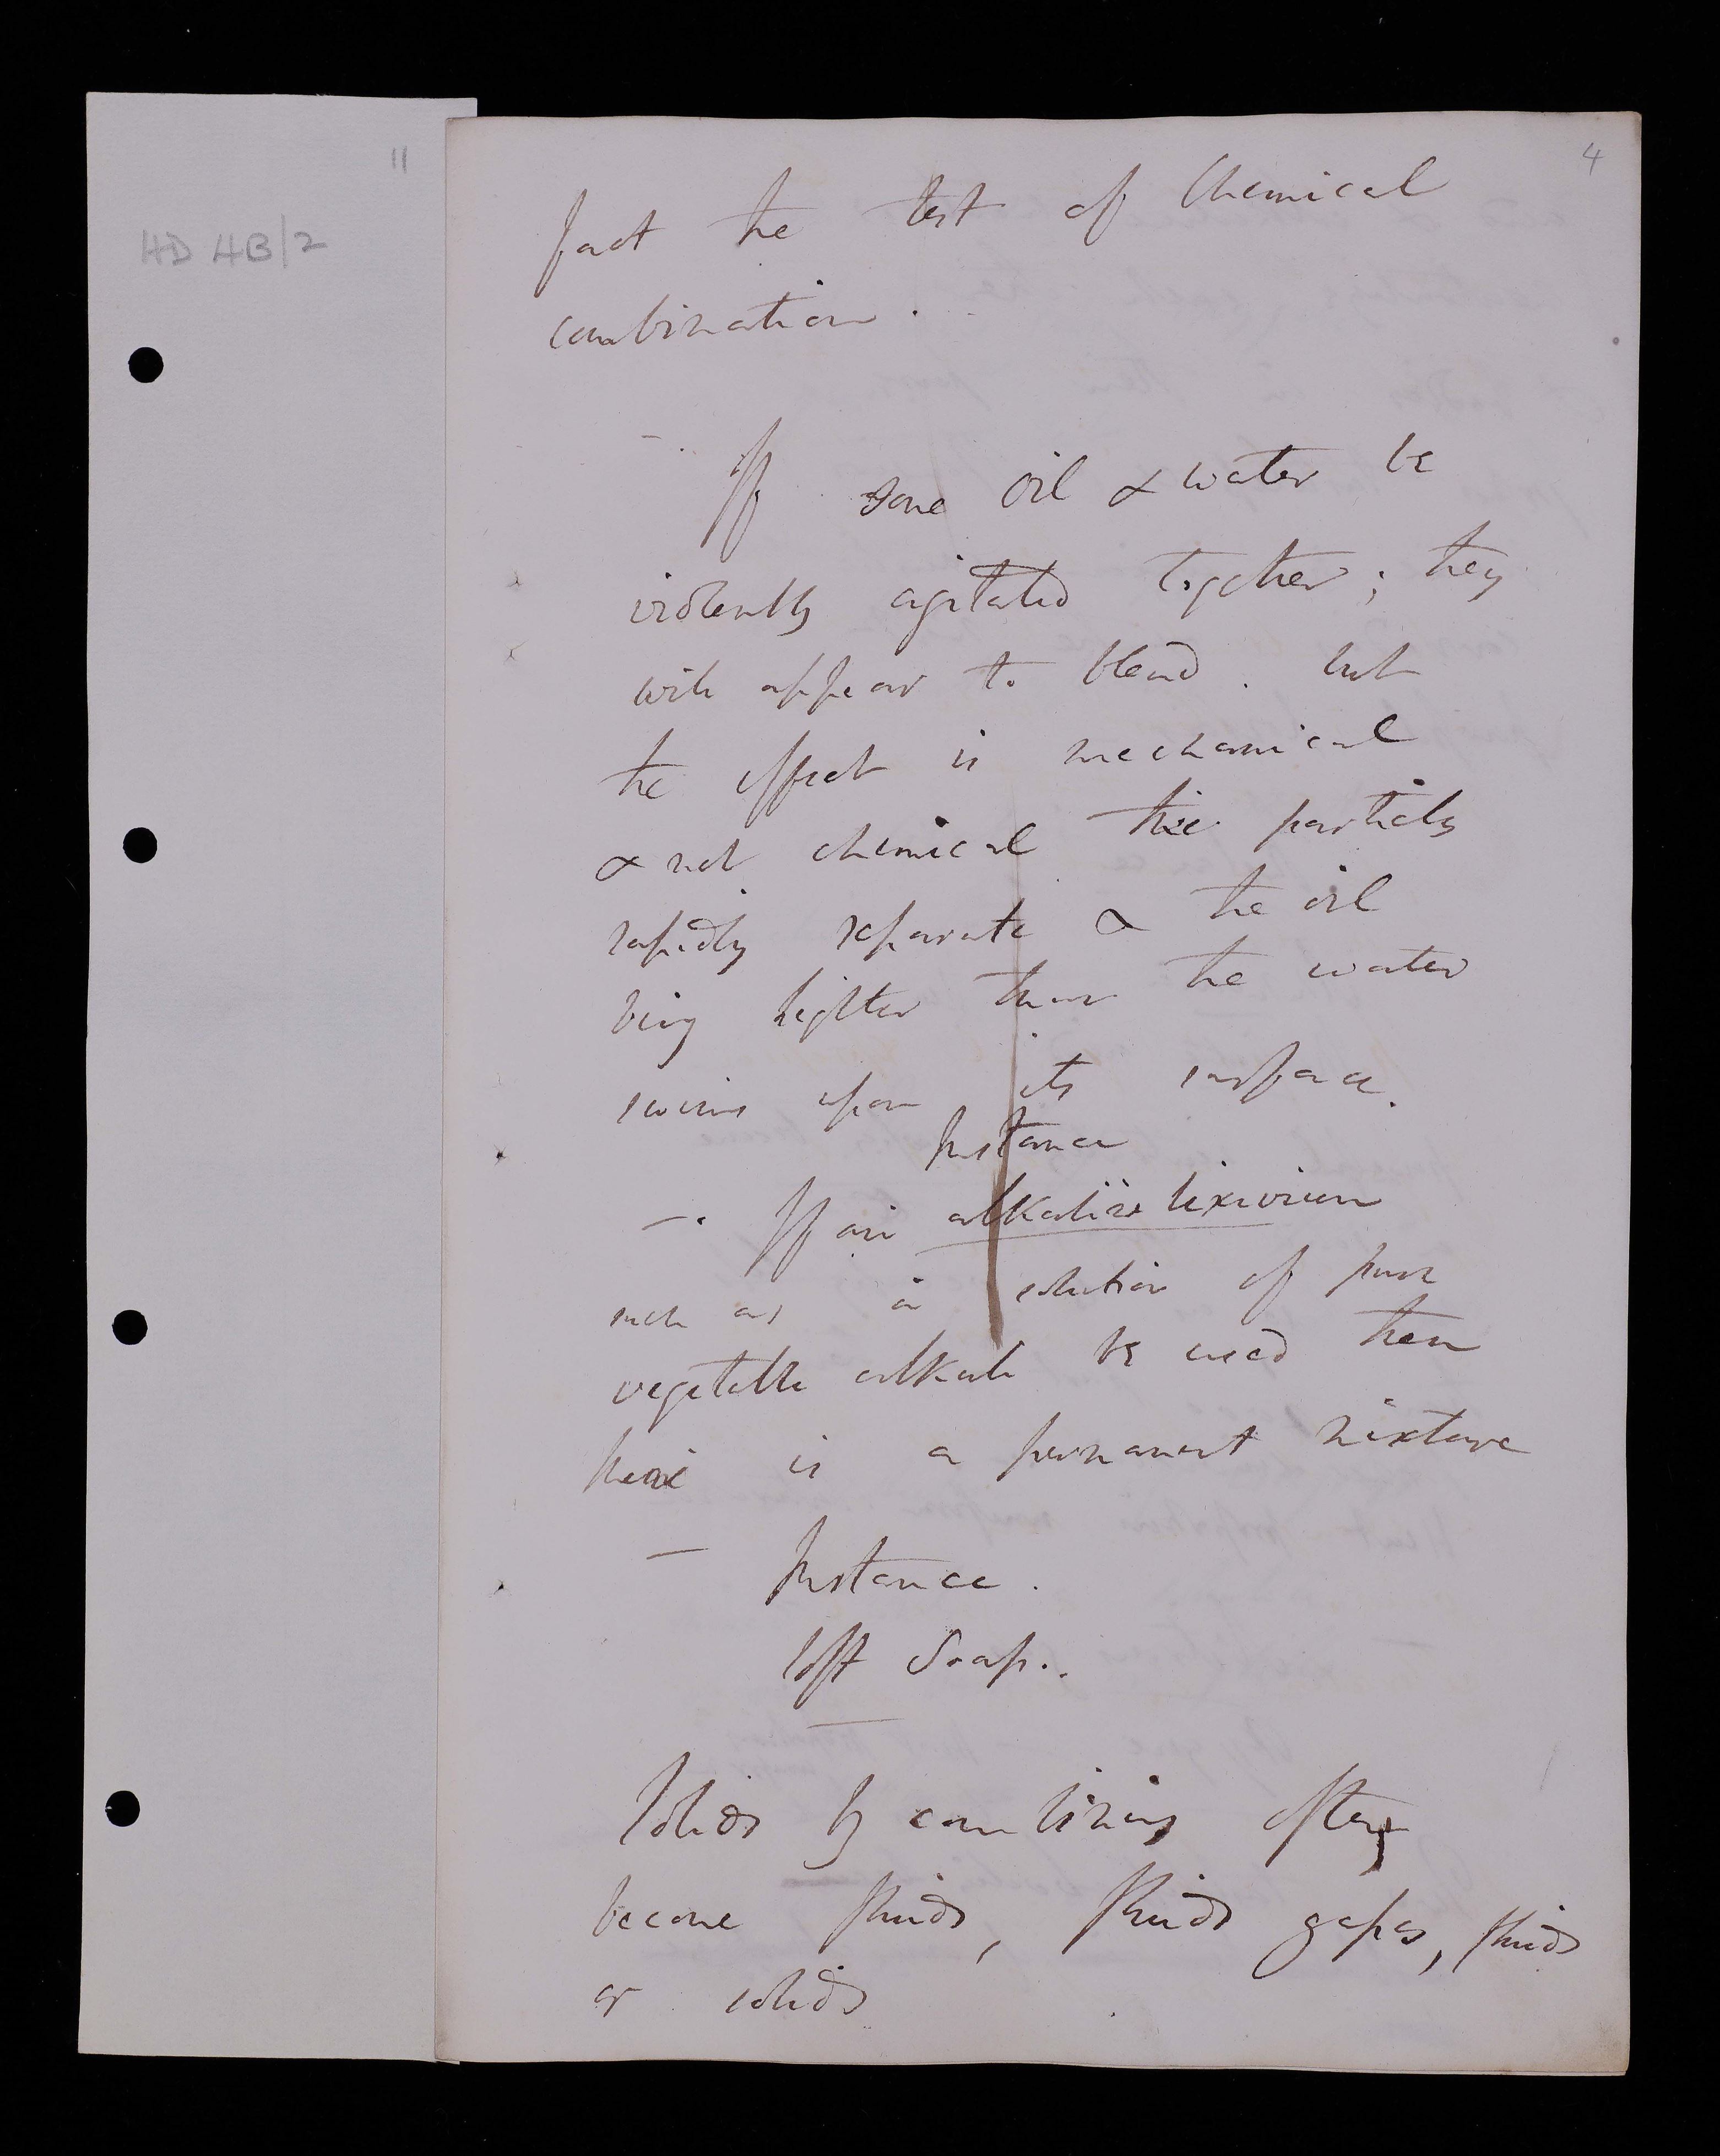 11
HD 4B/2
4
fact the test of Chemical
combination.
— If some oil & water be
violently agitated together; they
will appear to blend. but
the effect is mechanical
& not chemical the particles
rapidly separate & the oil
being lighter than the water
swims upon its surface.
Instance
—. If an alkaline lixivium
such as a solution of pure
vegetable alkali be used then
there is a permanent mixture
— Instance.
Soft Soap..
Solids by combining often
become fluids, fluids gases, fluids
or solids